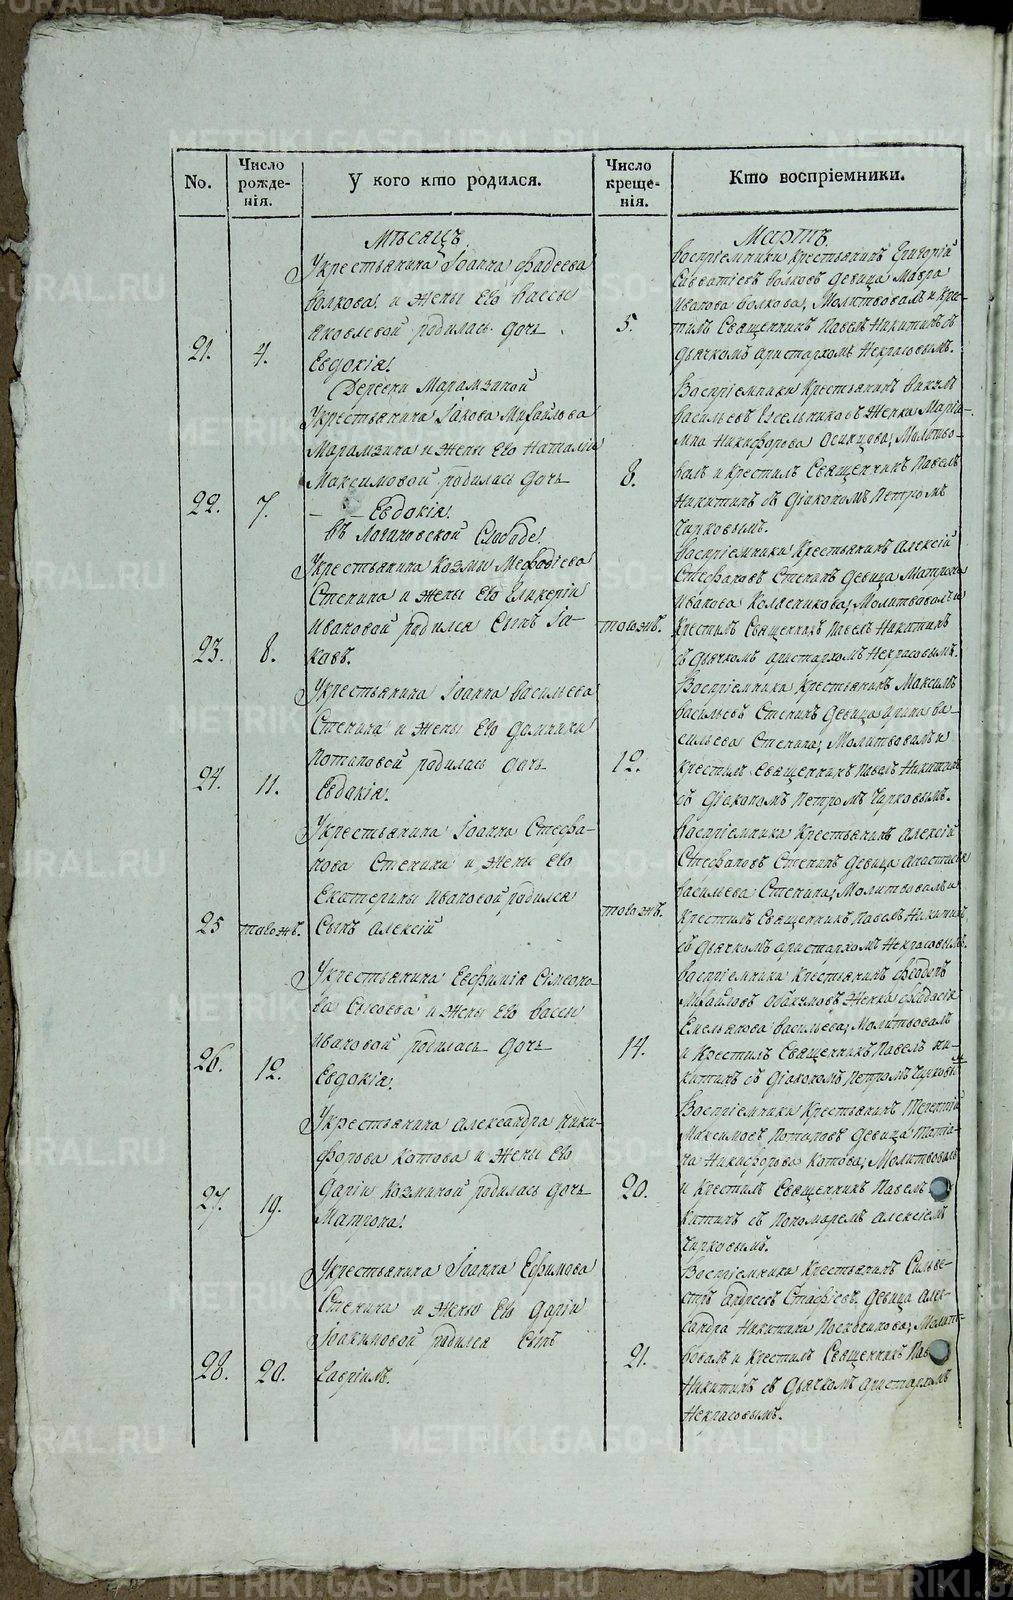 No.
Число рожде-нія.
У кого кто родился.
Число креще-нія.
Кто воспріемники.
Мѣсяцъ
Мартъ
21.
4.
У крестьянина Іоанна Фадеева
Волкова и жены его Вассы
Яковлевой родилась дочь
Евдокія.
5.
Воспріемники Крестьянинъ Григорій
Волковъ девица Мавра
Иванова Волкова; Молитвовалъ и Кре-
тилъ Священникъ Павелъ Никитинъ съ
Дьячкомъ Аристархомъ Некрасовымъ.
Деревни Марамзиной
22.
7.
У крестьянина Іакова Михайлова
Марамзина и жены его Наталіи
Максимовой родилась дочь
Евдокія.
8.
Воспріемники Крестьянинъ
Васильевъ женка Маріа-
мна Никифорова Осинцова; Молитво-
валъ и Крестилъ Священникъ Павелъ
Никитинъ съ Діакономъ Петромъ
Чирковымъ.
Въ Логиновской Слободе
23.
8.
У крестьянина Козмы Мефодіева
Степина и жены его Гликеріи
Ивановой родился Сынъ Іа-
ковъ.
тогожъ.
Воспріемники Крестьянинъ Алексій
Стефановъ Степинъ девица Матрона
Иванова Колясникова; Молитвовалъ и
Крестилъ Священникъ Павелъ Никитинъ
съ дьячкомъ Аристархомъ Некрасовымъ.
24.
11.
У крестьянина Іоанна Васильева
Степина и жены его Домники
Потаповой родилась дочь
Евдокія.
12.
Воспріемники Крестьянинъ Максимъ
Васильевъ Степинъ девица Ирина Ва-
сильева Степина; Молитвовалъ и
Крестилъ Священникъ Павелъ Никитинъ
съ Діакономъ Петромъ Чирковымъ.
25
тогожъ.
У крестьянина Іоанна Стефа-
нова Степина и жены его
Екатерины Ивановой родился
Сынъ Алексій
тогожъ.
Воспріемники Крестьянинъ Алексій
Стефановъ Степинъ девица Анастасія
Васильева Степина; Молитвовалъ и
Крестилъ Священникъ Павелъ Никитинъ
съ дьячкомъ Аристархомъ Некрасовымъ.
26.
12.
У крестьянина Евфимія Сімеоно-
ва Сысоева и жены его Вассы
Ивановой родилась дочь
Евдокія.
14.
Воспріемники Крестьянинъ Феодоръ
Михайловъ женка
Емельянова Васильева; Молитвовалъ
и Крестилъ Священникъ Павелъ Ни-
китинъ съ Діакономъ Петромъ Чирковымъ
27.
19.
У крестьянина Александра Ники-
форова Котова и жены его
Даріи Козминой родилась дочь
Матрона.
20.
Воспріемники Крестьянинъ Терентій
Максимовъ Потаповъ девица Татіа-
на Никифорова Котова; Молитвовалъ
и Крестилъ Священникъ Павелъ
китинъ съ Пономаремъ Алексіемъ
Чирковымъ.
28.
20.
У крестьянина Іоанна Ефимова
Степина и жены его Даріи
Іоакимовой родился Сынъ
Гавріилъ.
21.
Воспріемники Крестьянинъ Сильве-
стръ Андреевъ девица Алек-
сандра Никитина; Молит-
вовалъ и Крестилъ Священникъ
Никитинъ съ Дьячкомъ Аристархомъ
Некрасовымъ.
METRIKI.GASO-URAL.RU